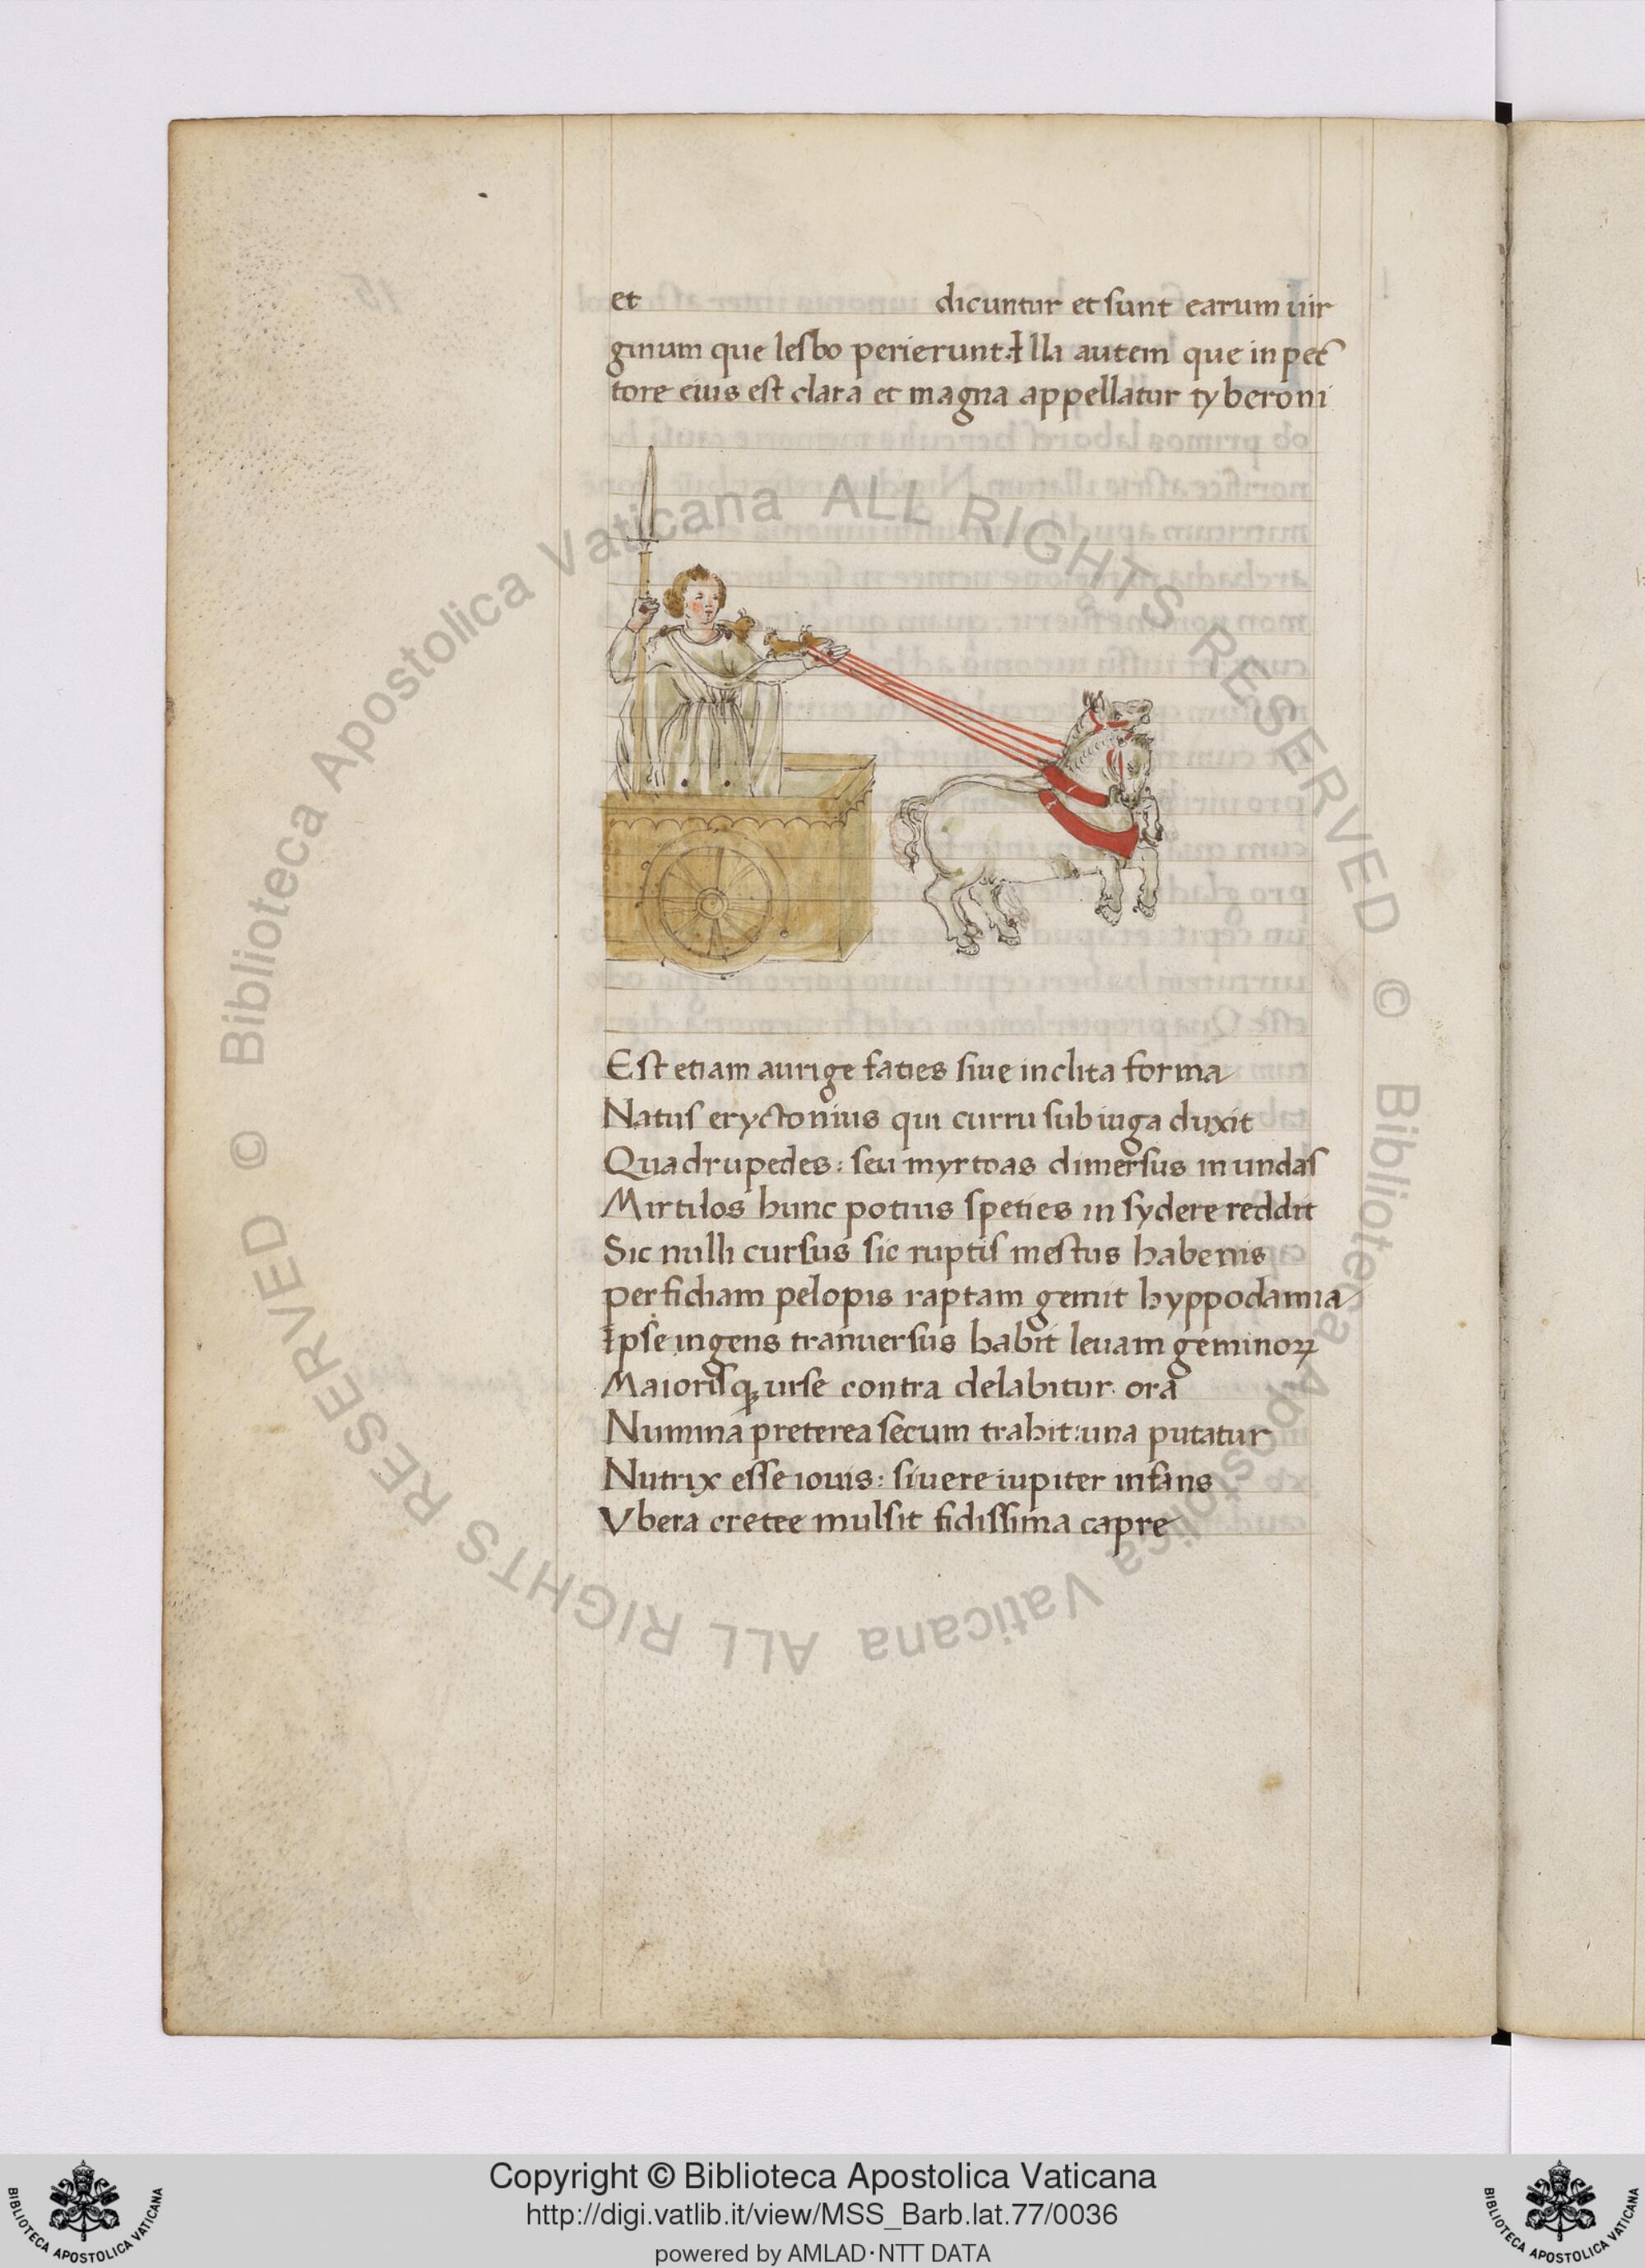 et dicuntur et sunt earum uir
ginum que lesbo perierunt. Illa autem que in pec
tore eius est clara et magna appellatur tyberoni
Est etiam aurige faties siue inclita forma
Natus eryctonius qui curru sub iuga duxit
Quadrupedes: seu myrtoas dimersus in undas
Mirtilos hunc potius speties in sydere reddit
Sic nulli cursus sic ruptis mestus habenis
perfidiam pelopis raptam gemit hyppodamia
Ipse ingens tranuersus habit leuam geminoꝝ
Maiorisqꝫ urse contra delabitur ora
Numina preterea secum trahit: una putatur
Nutrix esse iouis: si uere iupiter infans
Vbera cretee mulsit fidissima capre
© Biblioteca Apostolica Vaticana ALL RIGHTS RESERVED © Biblioteca Apostolica Vaticana ALL RIGHTS RESERVED
Copyright © Biblioteca Apostolica Vaticana
http://digi.vatlib.it/view/MSS_Barb.lat.77/0036
powered by AMLAD·NTT DATA
BIBLIOTECA APOSTOLICA VATICANA
BIBLIOTECA APOSTOLICA VATICANA